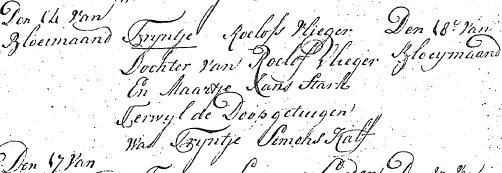 Den 14 Van
Bloeimaand
Tryntje Roelofs Vlieger
Dochter Van Roelof Vlieger
En Maartje Jans Stark
Terwyl de Doopgetuigen
Was Tryntje Simons Kalf
Den 18e Van
Bloeymaand
Den 17 Van